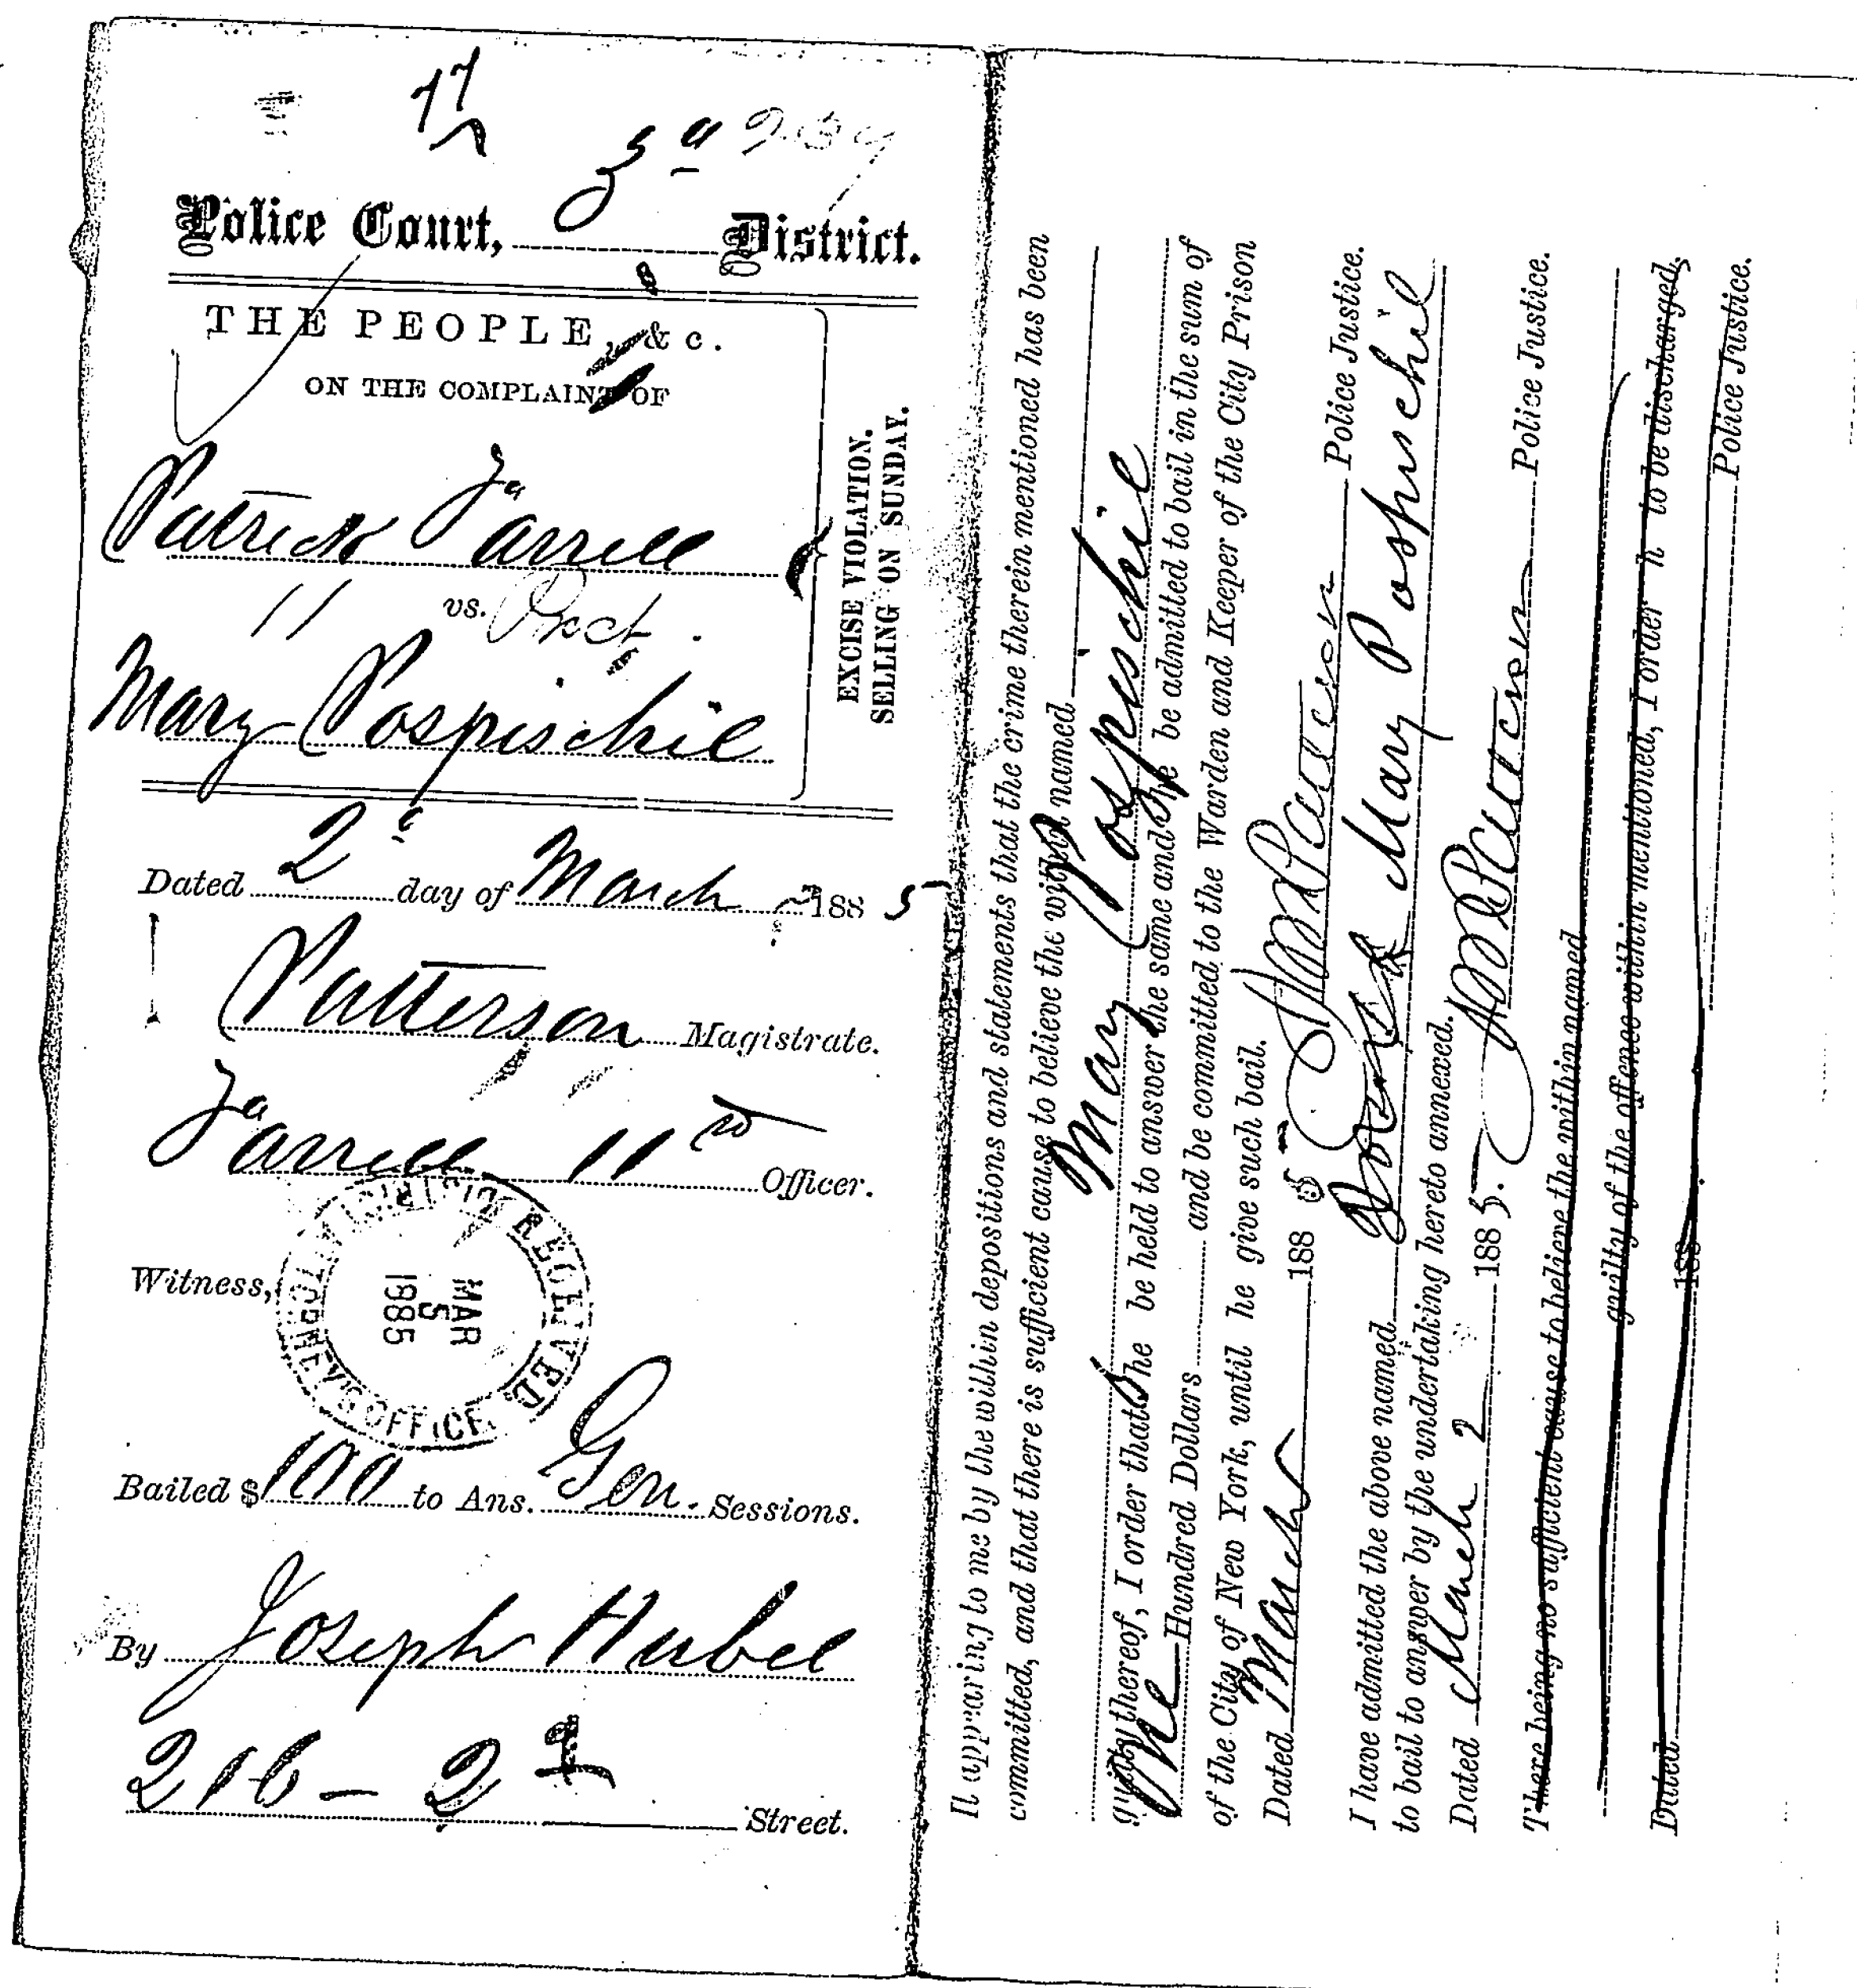 77
3d 239
Police Court, District.
THE PEOPLE, &c.
ON THE COMPLAINT OF
Patrick Farrell
11 vs. Prct.
Mary Pospischil
EXCISE VIOLATION.
SELLING ON SUNDAY.
Dated 2d day of March 1885
Patterson Magistrate.
Farrell 11th Officer.
Witness,
DISTRICT ATTORNEY'S OFFICE. RECEIVED
MAR
5
1885
Bailed $100 to Ans. Gen. Sessions.
By Joseph Hubel
216 - 2d Street.
It appearing to me by the within depositions and statements that the crime therein mentioned has been
committed, and that there is sufficient cause to believe the within named
Mary Pospischil
guilty thereof, I order that She be held to answer the same and She be admitted to bail in the sum of
One Hundred Dollars and be committed to the Warden and Keeper of the City Prison
of the City of New York, until he give such bail.
Dated March 1885 Police Justice.
I have admitted the above named Mary Pospischil
to bail to answer by the undertaking hereto annexed.
Dated March 2 1885. Police Justice.
There being no sufficient cause to believe the within named
guilty of the offence within mentioned, I order h to be discharged,
Dated 188 Police Justice.